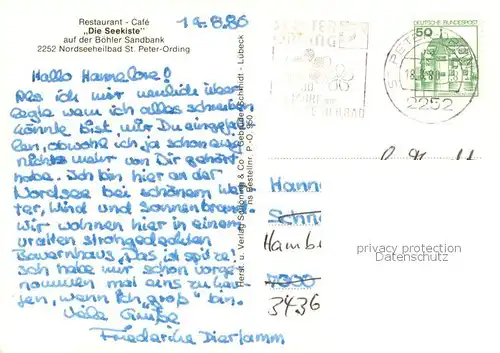 Restaurant - Café
"Die Seekiste"
auf der Böhler Sandbank
2252 Nordseeheilbad St. Peter-Ording
14.8.80
Hallo Hannelore!
Als ich mir neulich über-
legte wem ich alles schreiben
könnte bist mir Du eingefal-
len, obwohl ich ja schon ewig
nichts mehr von Dir gehört
habe. Ich bin hier an der
Nordsee bei schönem Wet-
ter, Wind und Sonnenbrand!
Wir wohnen hier in einem
uralten strohgedeckten
Bauernhaus. Das ist spitze!
Ich habe mir schon vorge-
nommen mal eins zu kau-
fen, wenn ich "groß" bin.
Viele Grüße
Friederike
Herst. u. Verlag Schöning & Co + Gebrüder Schmidt - Lübeck
DEUTSCHE BUNDESPOST
50
ST. PETER
2252
Hann
Schn
Hamb
3436
privacy protection
Datenschutz